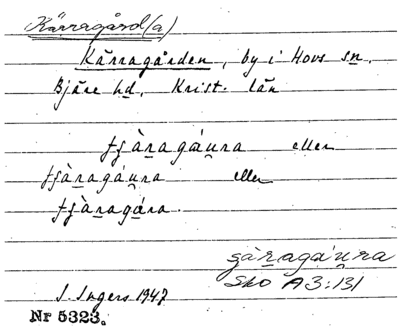 Kärragård(a)
Kärragården, by i Hovs sn.
Bjäre hd. Krist. län
tʃàragáu̯ra eller
tʃàragáu̯ra eller
tʃàragára.
ʂàragáu̯ra
Sko A3:131
I. Ingers 1947
Nr 5323.